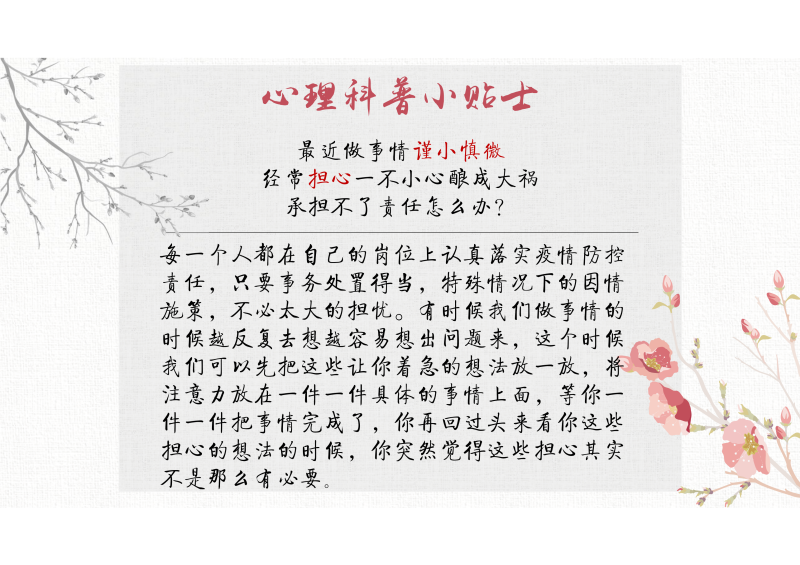 心理科普小贴士
最近做事情谨小慎微
经常担心一不小心酿成大祸
承担不了责任怎么办？
每一个人都在自己的岗位上认真落实疫情防控
责任，只要事务处置得当，特殊情况下的因情
施策，不必太大的担忧。有时候我们做事情的
时候越反复去想越容易想出问题来，这个时候
我们可以先把这些让你着急的想法放一放，将
注意力放在一件一件具体的事情上面，等你一
件一件把事情完成了，你再回过头来看你这些
担心的想法的时候，你突然觉得这些担心其实
不是那么有必要。